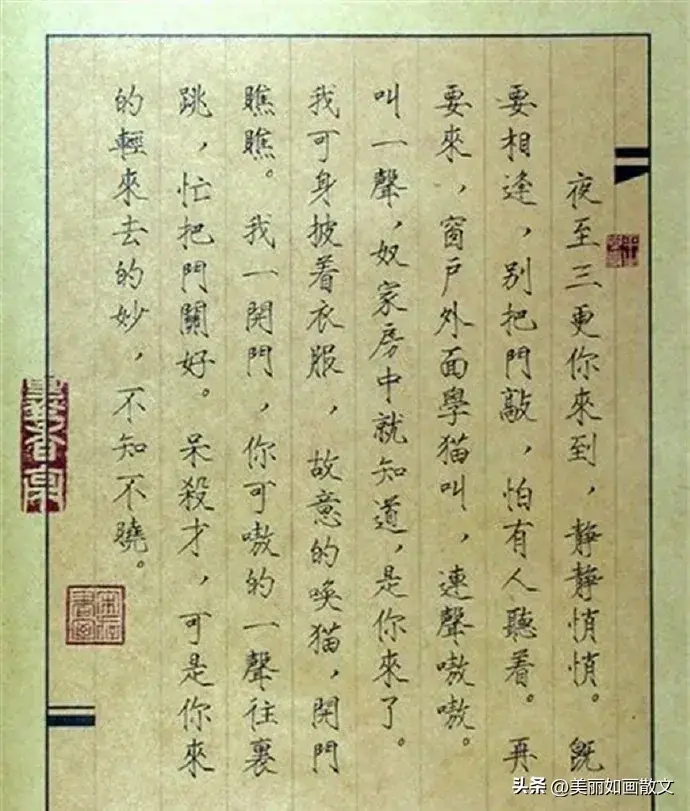 夜至三更你來到，靜靜悄悄。既
要相逢，別把門敲，怕有人聽着。再
要來，窗戶外面學猫叫，連聲嗷嗷。
叫一聲，奴家房中就知道，是你來了。
我可身披着衣服，故意的喚猫，開門
瞧瞧。我一開門，你可嗷的一聲往裏
跳，忙把門關好。呆殺才，可是你來
的輕來去的妙，不知不曉。
头条 @美丽如画散文